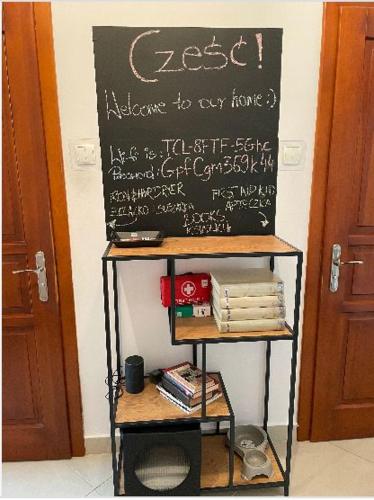 Cześć!
Welcome to our home :)
Wi-Fi is: TCL-8FTF-5Ghc
Password: GpfCgm369k44
IRON & HAIRDRYER
FIRST AID KID
ŻELAZKO I SUSZARKA
APTECZKA
BOOKS
KSIĄŻKI